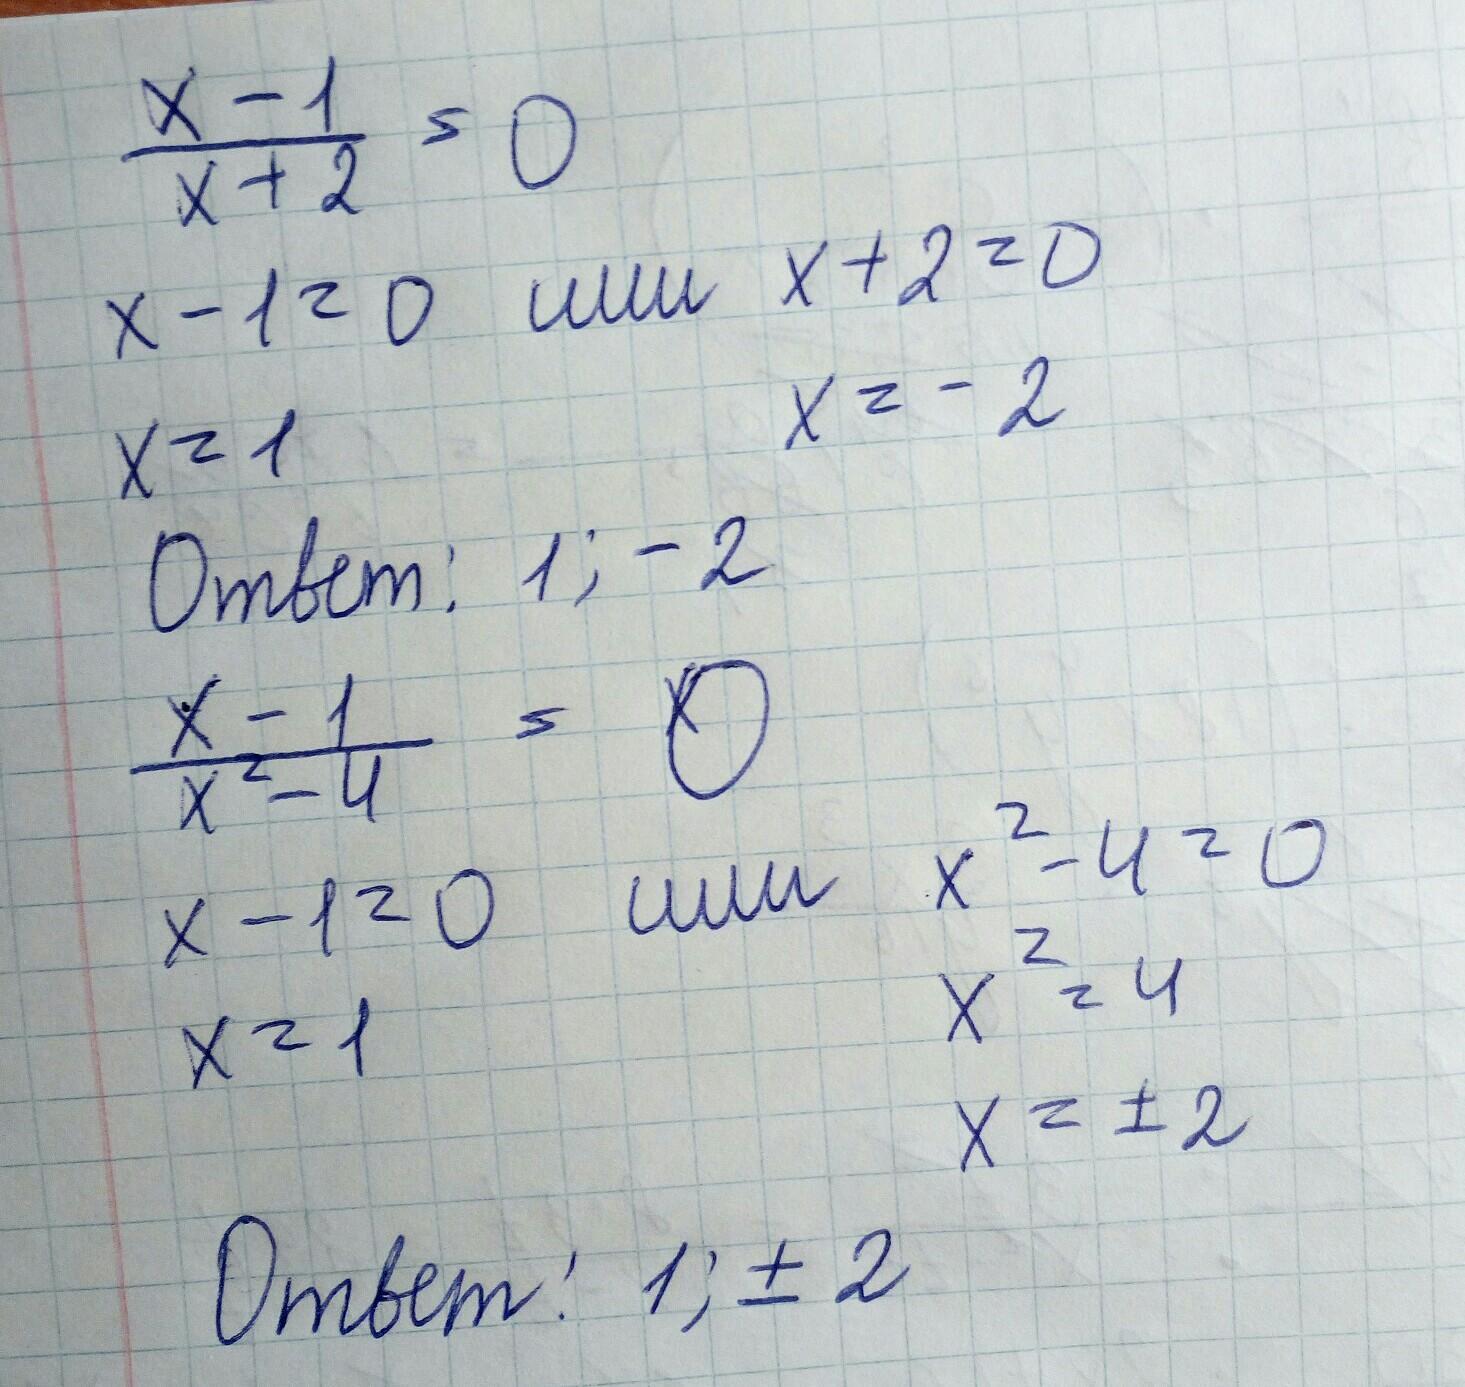 x - 1
x + 2 = 0
x - 1 = 0 или x + 2 = 0
x = 1 x = - 2
Ответ: 1; - 2
x - 1
x² - 4 = 0
x - 1 = 0 или x² - 4 = 0
x² = 4
x = 1
x = ± 2
Ответ: 1; ± 2